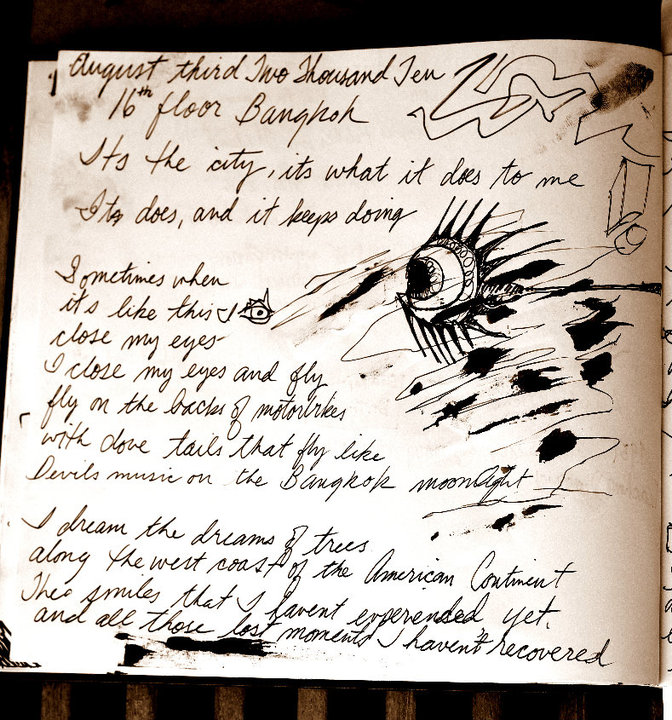 August third Two Thousand Ten
16th floor Bangkok
Its the city, its what it does to me
Its does, and it keeps doing
Sometimes when
it's like this I
close my eyes-
I close my eyes and fly
fly on the backs of motorbikes
with dove tails that fly like
Devils music on the Bangkok moonlight
I dream the dreams of trees
along the west coast of the American Continent
The smiles that I havent experended yet.
and all those lost moments I haven't recovered